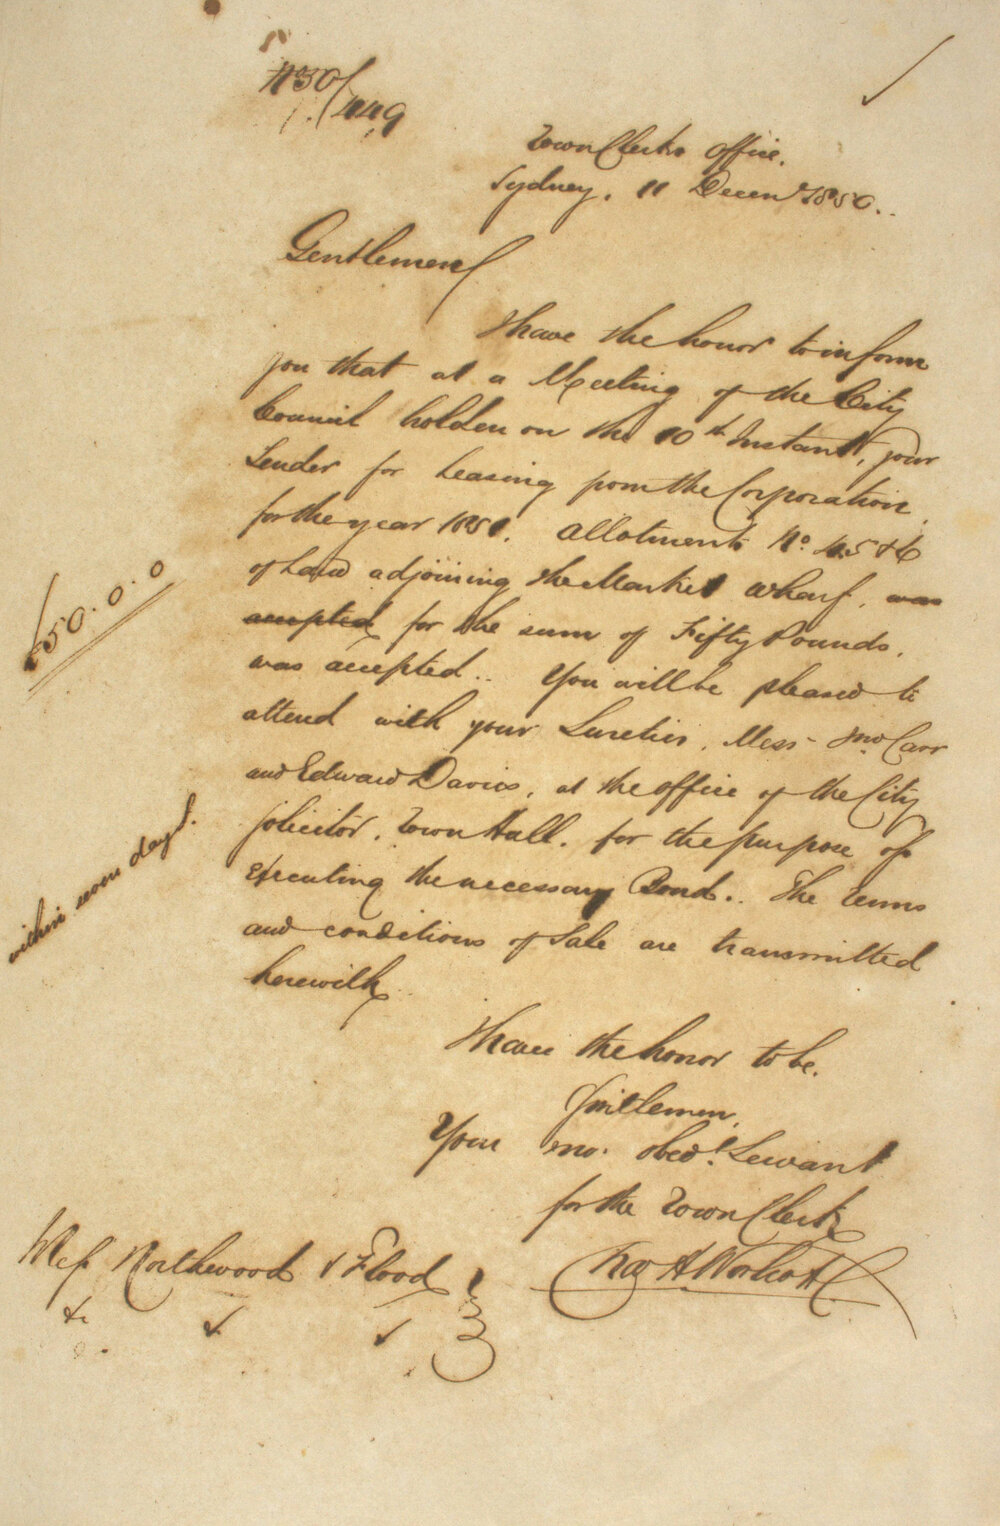 No 50/449
Town Clerks Office.
Sydney. 11 Decemr 1850.
Gentlemen
I have the honor to inform
you that at a Meeting of the City
Council holden on the 10th Instant, your
Tender for Leasing from the Corporation
for the year 1851. Allotments No. 4.5 & 6
of Land adjoining the Market Wharf. was
accepted for the sum of Fifty Pounds.
£50.0.0
was accepted.. You will be pleased to
attend with your Sureties, Mess- Jno Carr
and Edward Davies, at the office of the City
Solicitor, Town Hall. for the purpose of
within seven days.
Executing the necessary Bond.. The terms
and conditions of Sale are transmitted
herewith
I have the honor to be.
Gentlemen,
Your mo. obedt. Servant
for the Town Clerk
Mess Northwood & Flood